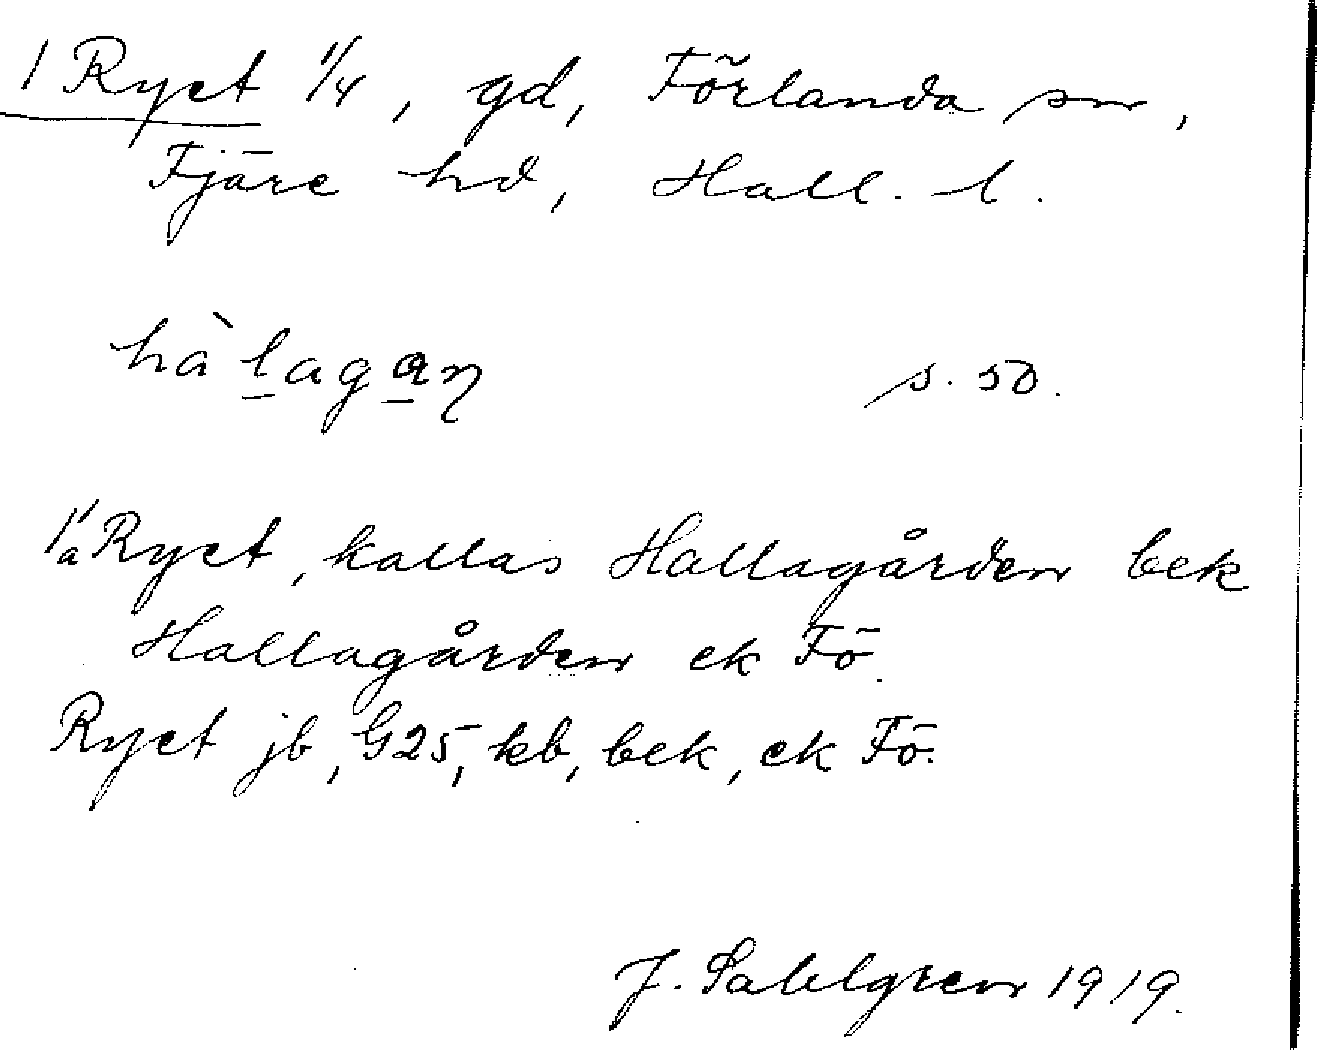 1 Ryet 1/4, gd, Förlanda sn,
Fjäre hd, Hall. l.
hàlagaŋ s. so.
1/a Ryet, kallas Hallagården bek
Hallagården ek Fö.
Ryet jb, G25, kb, bek, ek Fö.
J. Sahlgren 1919.